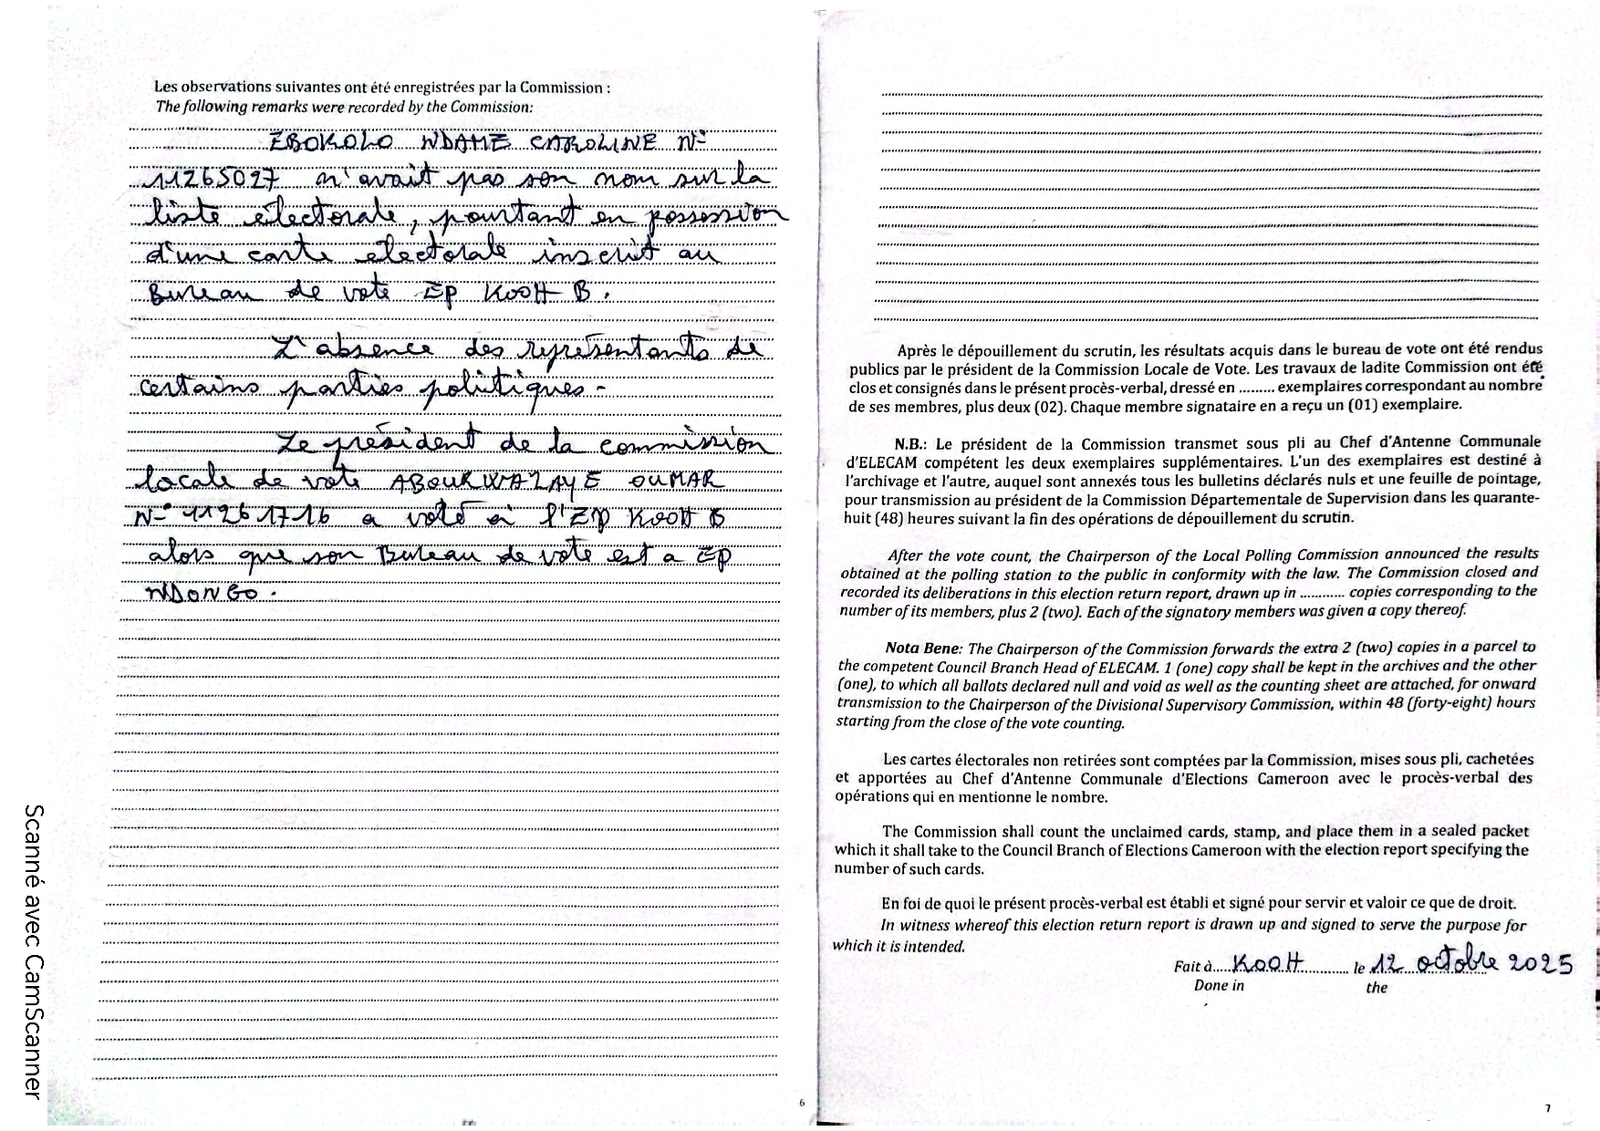 Les observations suivantes ont été enregistrées par la Commission :
The following remarks were recorded by the Commission:
EBOKOLO NDAME CAROLINE N°
11265027 n'avait pas son nom sur la
liste électorale, pourtant en possession
d'une carte électorale inscrit au
Bureau de vote EP KOOH B.
L'absence des représentants de
certains parties politiques-
Le président de la commission
locale de vote ABOURWALAYE OUMAR
N° 11261716 a voté à l'EP KOOH B
alors que son Bureau de vote est a EP
NDONGO.
6
Après le dépouillement du scrutin, les résultats acquis dans le bureau de vote ont été rendus
publics par le président de la Commission Locale de Vote. Les travaux de ladite Commission ont été
clos et consignés dans le présent procès-verbal, dressé en ......... exemplaires correspondant au nombre
de ses membres, plus deux (02). Chaque membre signataire en a reçu un (01) exemplaire.
N.B.: Le président de la Commission transmet sous pli au Chef d'Antenne Communale
d'ELECAM compétent les deux exemplaires supplémentaires. L'un des exemplaires est destiné à
l'archivage et l'autre, auquel sont annexés tous les bulletins déclarés nuls et une feuille de pointage,
pour transmission au président de la Commission Départementale de Supervision dans les quarante-
huit (48) heures suivant la fin des opérations de dépouillement du scrutin.
After the vote count, the Chairperson of the Local Polling Commission announced the results
obtained at the polling station to the public in conformity with the law. The Commission closed and
recorded its deliberations in this election return report, drawn up in ........... copies corresponding to the
number of its members, plus 2 (two). Each of the signatory members was given a copy thereof.
Nota Bene: The Chairperson of the Commission forwards the extra 2 (two) copies in a parcel to
the competent Council Branch Head of ELECAM. 1 (one) copy shall be kept in the archives and the other
(one), to which all ballots declared null and void as well as the counting sheet are attached, for onward
transmission to the Chairperson of the Divisional Supervisory Commission, within 48 (forty-eight) hours
starting from the close of the vote counting.
Les cartes électorales non retirées sont comptées par la Commission, mises sous pli, cachetées
et apportées au Chef d'Antenne Communale d'Elections Cameroon avec le procès-verbal des
opérations qui en mentionne le nombre.
The Commission shall count the unclaimed cards, stamp, and place them in a sealed packet
which it shall take to the Council Branch of Elections Cameroon with the election report specifying the
number of such cards.
En foi de quoi le présent procès-verbal est établi et signé pour servir et valoir ce que de droit.
In witness whereof this election return report is drawn up and signed to serve the purpose for
which it is intended.
Fait à.....KOOH........... le 12 octobre 2025
Done in the
7
Scanné avec CamScanner